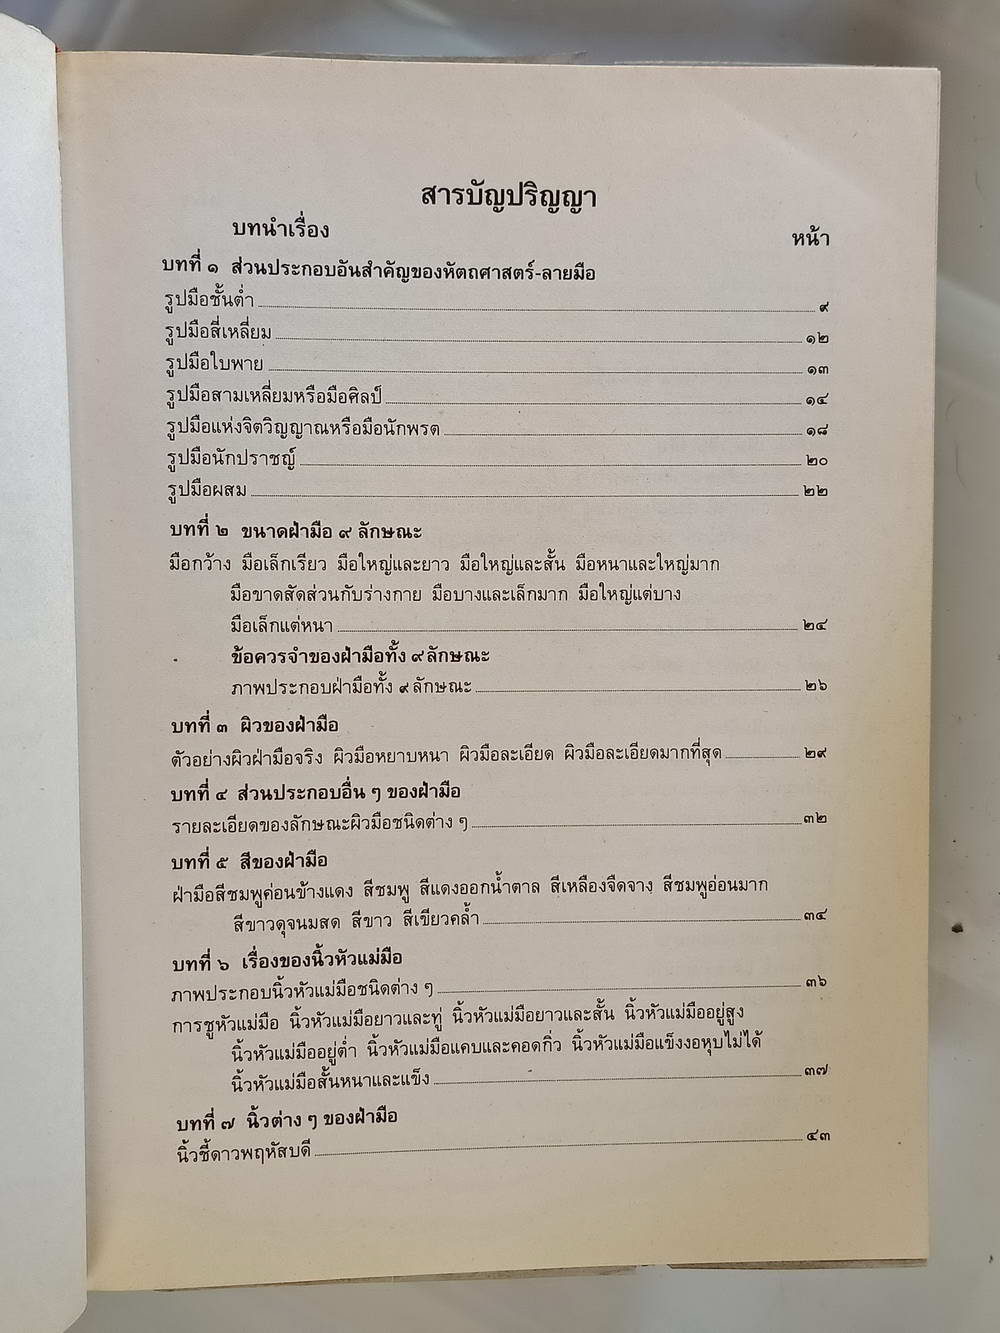 สารบัญปริญญา
บทนำเรื่อง
หน้า
บทที่ ๑ ส่วนประกอบอันสำคัญของหัตถศาสตร์-ลายมือ
รูปมือชั้นต่ำ ๙
รูปมือสี่เหลี่ยม ๑๒
รูปมือใบพาย ๑๓
รูปมือสามเหลี่ยมหรือมือศิลป์ ๑๔
รูปมือแห่งจิตวิญญาณหรือมือนักพรต ๑๘
รูปมือนักปราชญ์ ๒๐
รูปมือผสม ๒๒
บทที่ ๒ ขนาดฝ่ามือ ๙ ลักษณะ
มือกว้าง มือเล็กเรียว มือใหญ่และยาว มือใหญ่และสั้น มือหนาและใหญ่มาก
มือขาดสัดส่วนกับร่างกาย มือบางและเล็กมาก มือใหญ่แต่บาง
มือเล็กแต่หนา ๒๔
ข้อควรจำของฝ่ามือทั้ง ๙ ลักษณะ
ภาพประกอบฝ่ามือทั้ง ๙ ลักษณะ ๒๖
บทที่ ๓ ผิวของฝ่ามือ
ตัวอย่างผิวฝ่ามือจริง ผิวมือหยาบหนา ผิวมือละเอียด ผิวมือละเอียดมากที่สุด ๒๙
บทที่ ๔ ส่วนประกอบอื่น ๆ ของฝ่ามือ
รายละเอียดของลักษณะผิวมือชนิดต่าง ๆ ๓๒
บทที่ ๕ สีของฝ่ามือ
ฝ่ามือสีชมพูค่อนข้างแดง สีชมพู สีแดงออกน้ำตาล สีเหลืองจืดจาง สีชมพูอ่อนมาก
สีขาวดุจนมสด สีขาว สีเขียวคล้ำ ๓๔
บทที่ ๖ เรื่องของนิ้วหัวแม่มือ
ภาพประกอบนิ้วหัวแม่มือชนิดต่าง ๆ ๓๖
การชูหัวแม่มือ นิ้วหัวแม่มือยาวและทู่ นิ้วหัวแม่มือยาวและสั้น นิ้วหัวแม่มืออยู่สูง
นิ้วหัวแม่มืออยู่ต่ำ นิ้วหัวแม่มือแคบและคอดกิ่ว นิ้วหัวแม่มือแข็งงอหุบไม่ได้
นิ้วหัวแม่มือสั้นหนาและแข็ง ๓๗
บทที่ ๗ นิ้วต่าง ๆ ของฝ่ามือ
นิ้วชี้ดาวพฤหัสบดี ๔๓